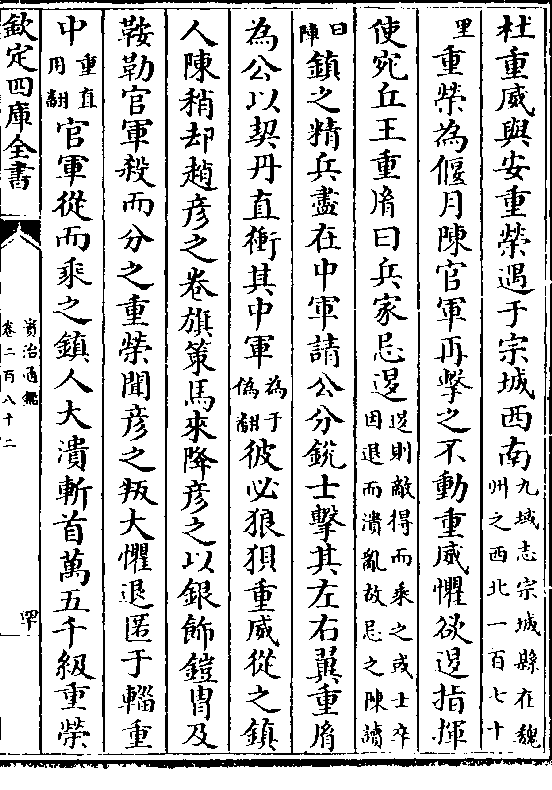 杜重威與安重榮遇于宗城西南九域志宗城縣在魏州之西北一百七十
里重榮為偃月陳官軍再擊之不動重威懼欲退指揮
使宛丘王重𦙍曰兵家忌退退則敵得而乘之或士卒因退而潰亂故忌之陳讀
曰陣鎮之精兵盡在中軍請公分銳士擊其左右翼重𦙍
為公以契丹直衝其中軍為于偽翻彼必狼狽重威從之鎮
人陳稍却趙彦之卷旗策馬來降彦之以銀飾鎧胄及
鞍勒官軍殺而分之重榮聞彦之叛大懼退匿于輜重
中重直用翻官軍從而乘之鎮人大潰斬首萬五千級重榮
欽定四庫全書
資治通鑑
卷二百八十二